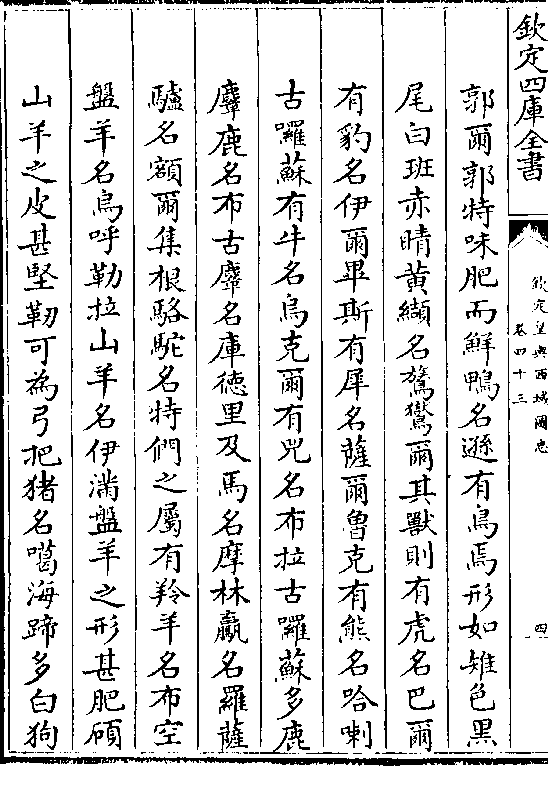 欽定四庫全書
欽定皇輿西域圖志
卷四十三
四
郭爾郭特味肥而鮮鴨名遜有鳥焉形如雉色黑
尾白班赤睛黃纈名鶩鸑爾其獸則有虎名巴爾
有豹名伊爾畢斯有犀名薩爾魯克有熊名哈喇
古囉蘇有牛名烏克爾有兕名布拉古囉蘇多鹿
麞鹿名布古麞名庫德里及馬名摩林驘名羅薩
驢名額爾集根駱駝名特們之屬有羚羊名布空
盤羊名烏呼勒拉山羊名伊滿盤羊之形甚肥碩
山羊之皮甚堅韌可為弓把猪名噶海蹄多白狗